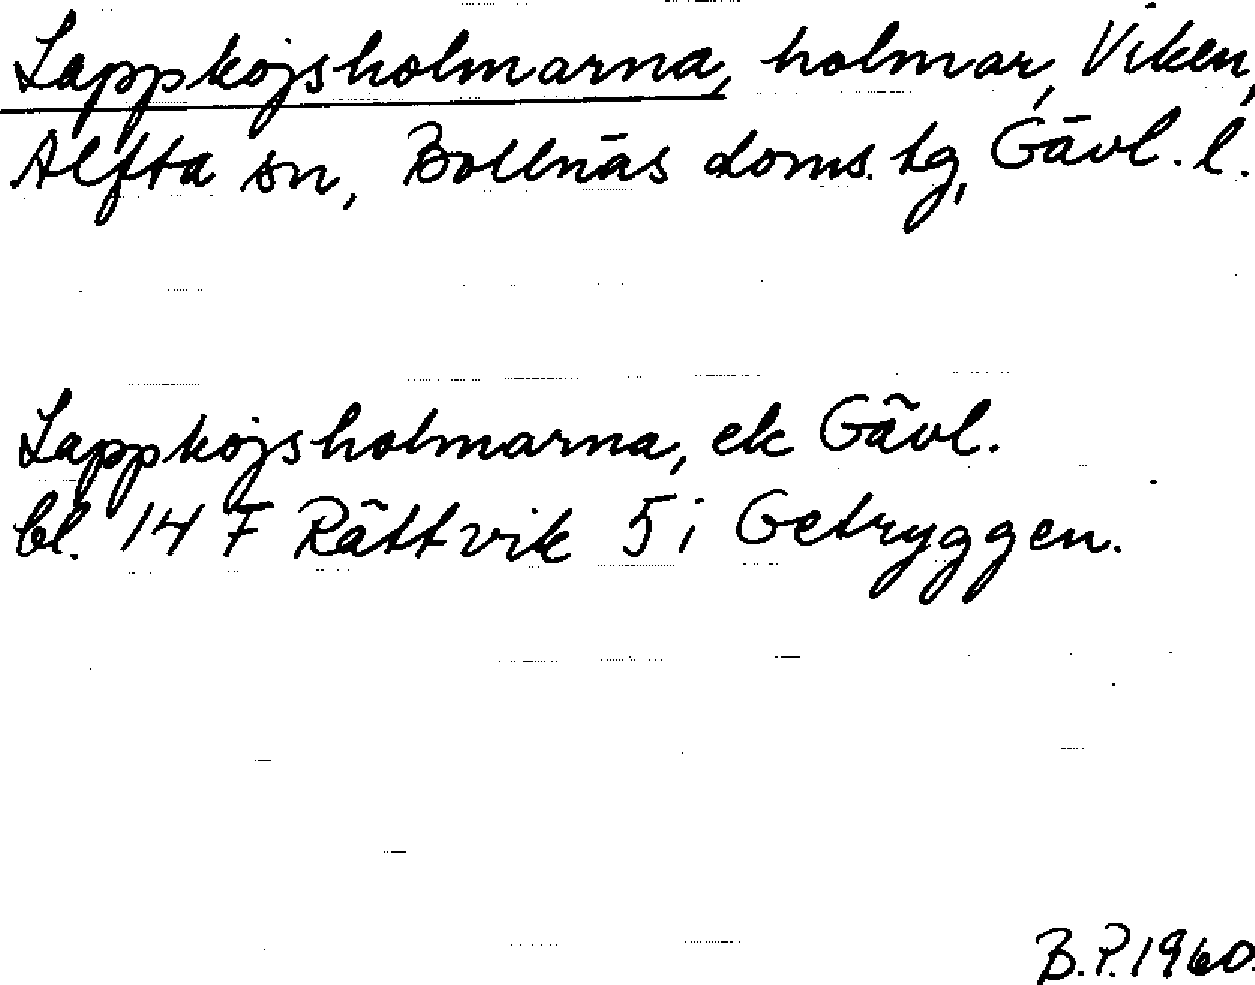 Lappkojsholmarna, holmar, Viken,
Alfta sn, Bollnäs doms. tg, Gävl. l.
Lappkojsholmarna, ek Gävl.
bl. 14 F Rättvik 5 i Getryggen.
B.P. 1960.